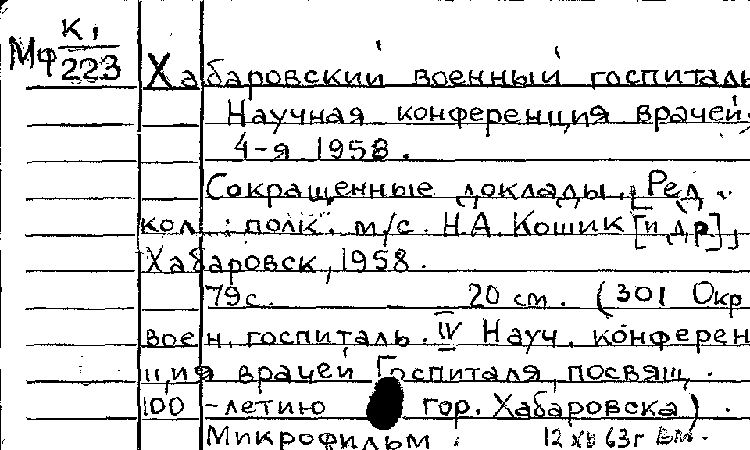 Мф К1/223
Хабаровский военный госпиталь
Научная конференция врачей,
4-я 1958.
Сокращенные доклады. [Ред.
кол.: полк. м/с. Н.А. Кошик [и др],
Хабаровск, 1958.
79с. 20 см. (301 Окр
воен. госпиталь. IV Науч. конферен
ция врачей Госпиталя, посвящ.
100-летию гор. Хабаровска).
Микрофильм. 12 63г